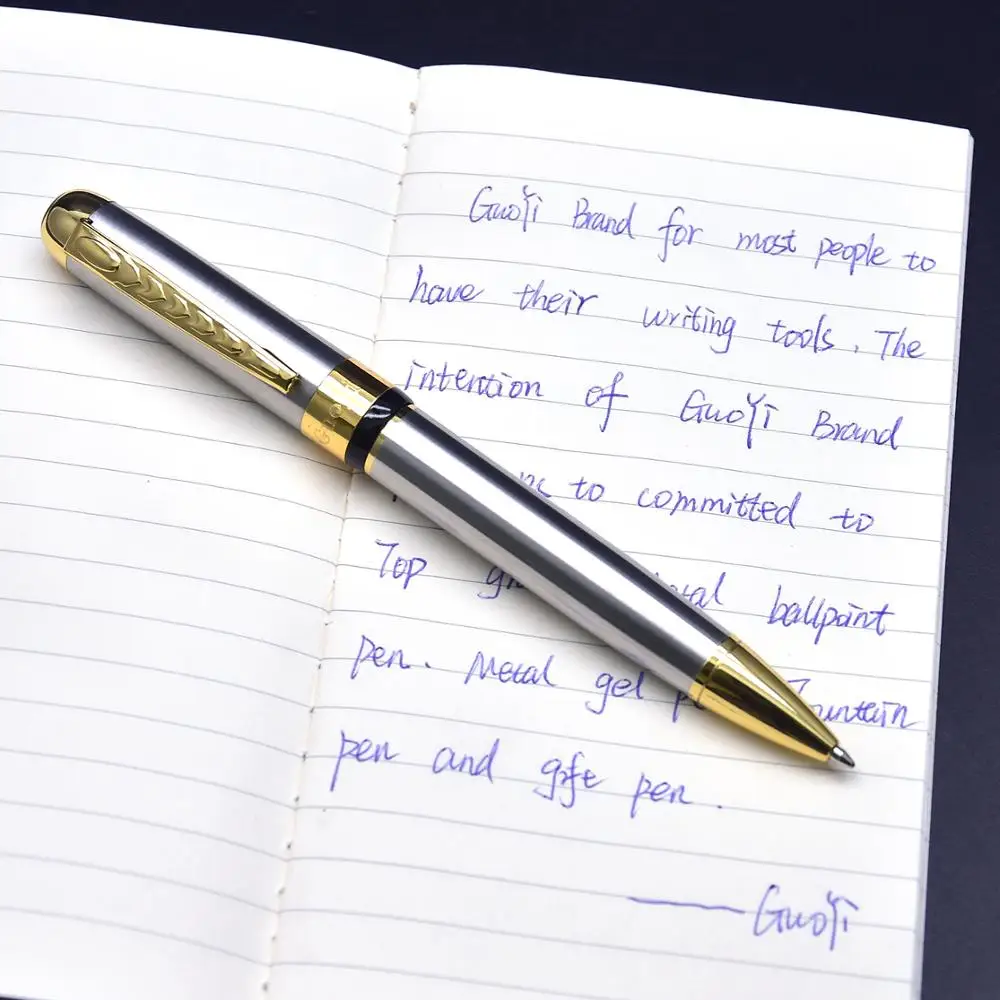 GuoYi Brand for most people to
have their writing tools. The
intention of GuoYi Brand
to committed to
Top ballpoint
pen. Metal gel
pen and gife pen.
—— GuoYi